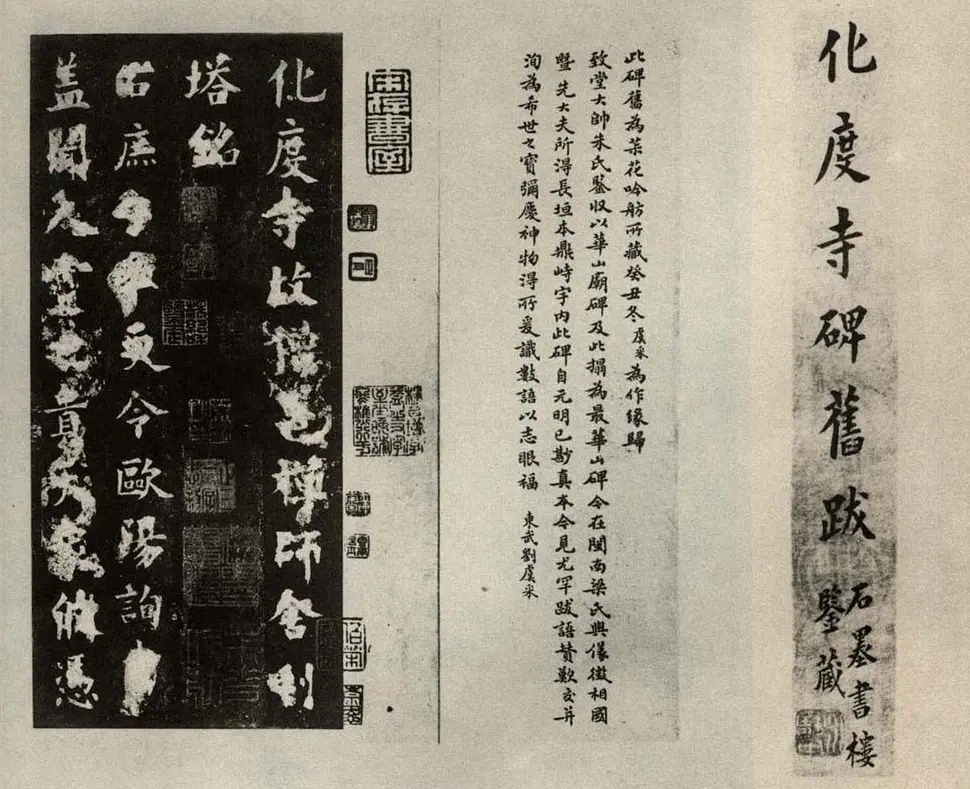 化度寺碑舊跋
石墨書樓
鑒藏
此碑舊為菜花吟舫所藏癸丑冬虞采為作緣歸
致堂大帥朱氏鑒收以華山廟碑及此搨為最華山碑今在閩南梁氏與儀徵相國
暨先大夫所得長垣本鼎峙宇內此碑自元明已尠真本今見尤罕跋語贊歎交并
洵為希世之寶彌慶神物得所爰識數語以志眼福 東武劉虞采
宋存書室
化度寺故僧邕禪師舍利
塔銘
右庶子率更令歐陽詢
盖聞人靈之貴天象攸憑